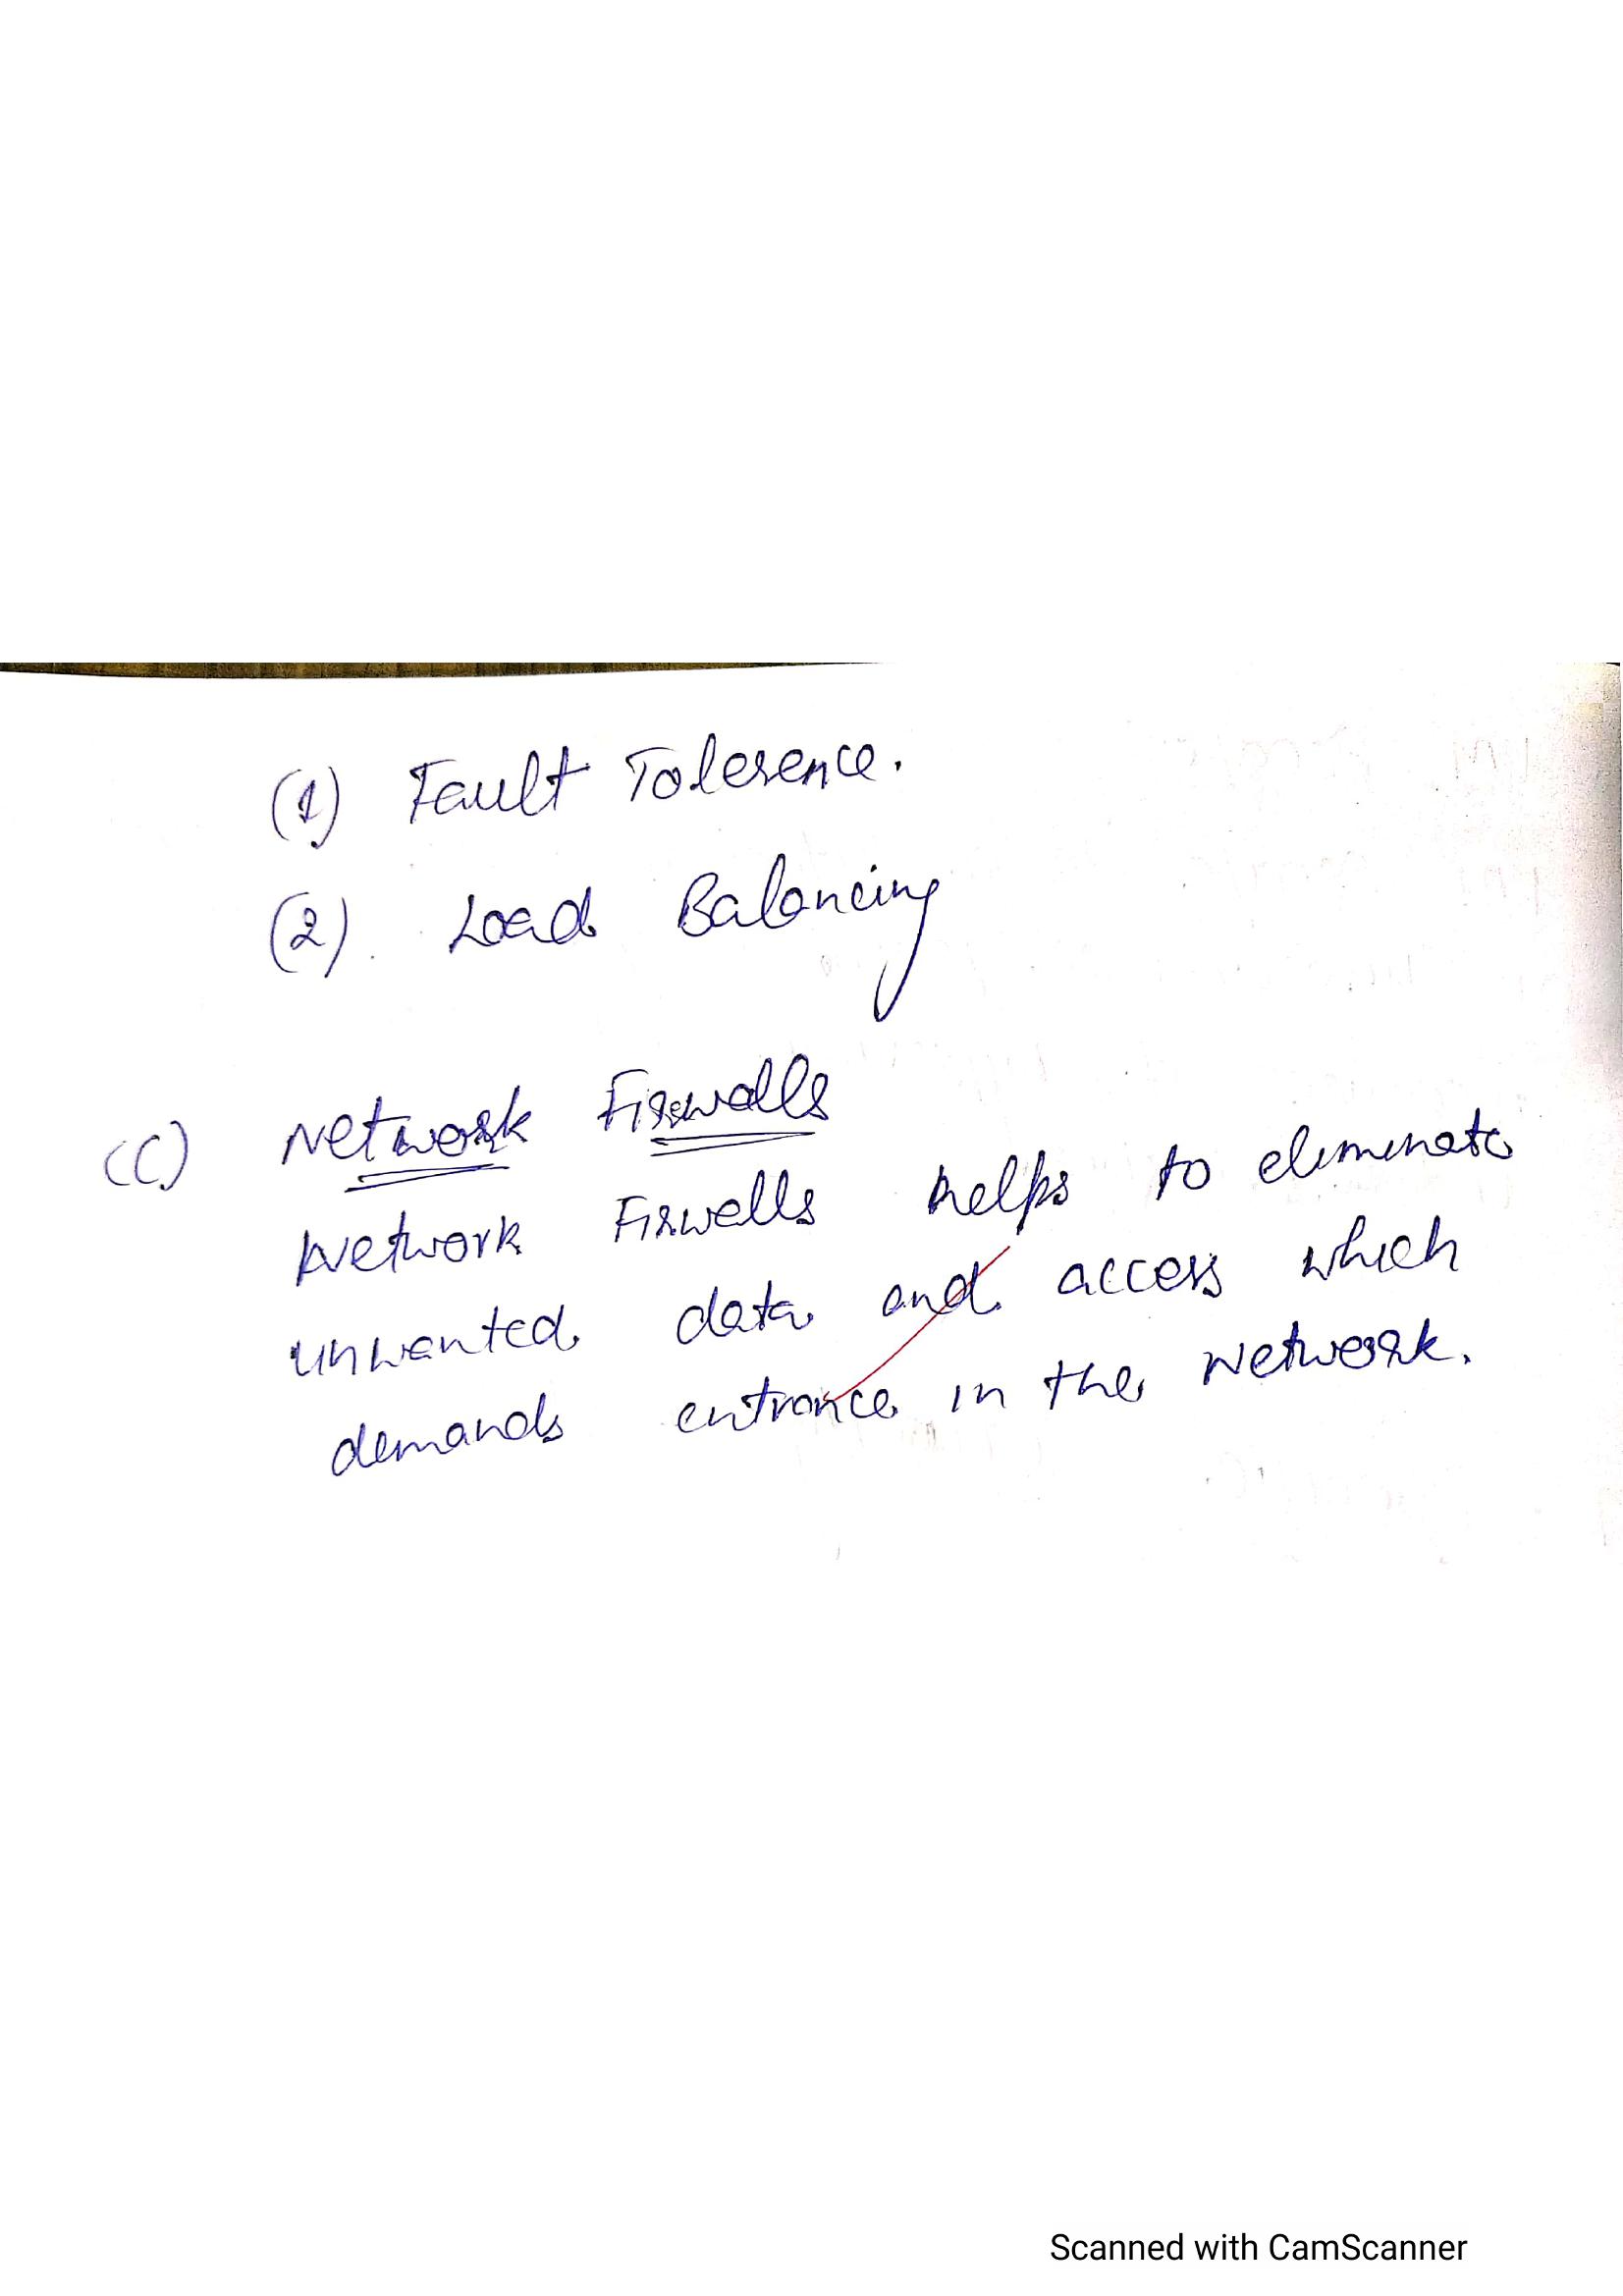 (1) Fault Tolerence.
(2). Load Balancing
(C) Network Firewalls
Network Firwells helps to elimenate
unwanted data and access which
demands entrance in the Network.
Scanned with CamScanner